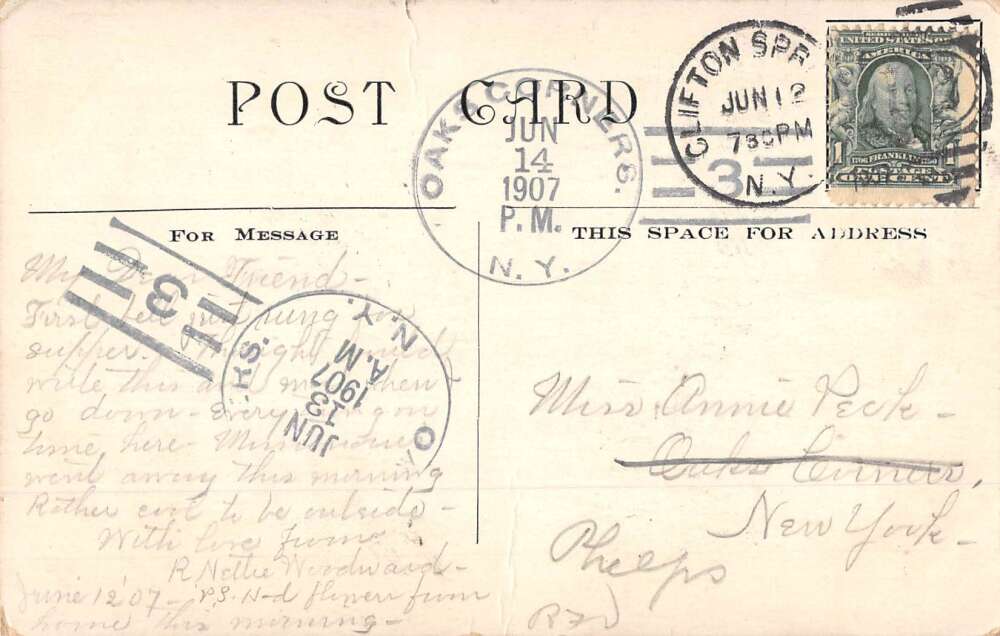 POST CARD
OAKS CORNERS.
JUN
14
1907
P.M.
N.Y.
3
CLIFTON SPR
JUN 12
730PM
N.Y.
UNITED STATES OF
AMERICA
1706 FRANKLIN 1790
1 1
POSTAGE
ONE CENT
FOR MESSAGE
THIS SPACE FOR ADDRESS
3
O RS.
JUN
13
1907
A.M
N.Y.
My Dear Friend-
First bell just rung for
supper. Thought I would
write this and then
go down- every on
time here-
went away this morning
Rather cool to be outside-
With love from
R Nettie Woodward-
June 12 '07- P.S. H-d flowers from
home this morning-
Miss Annie Peck-
Oaks Corners,
New York-
Phelps
RFD